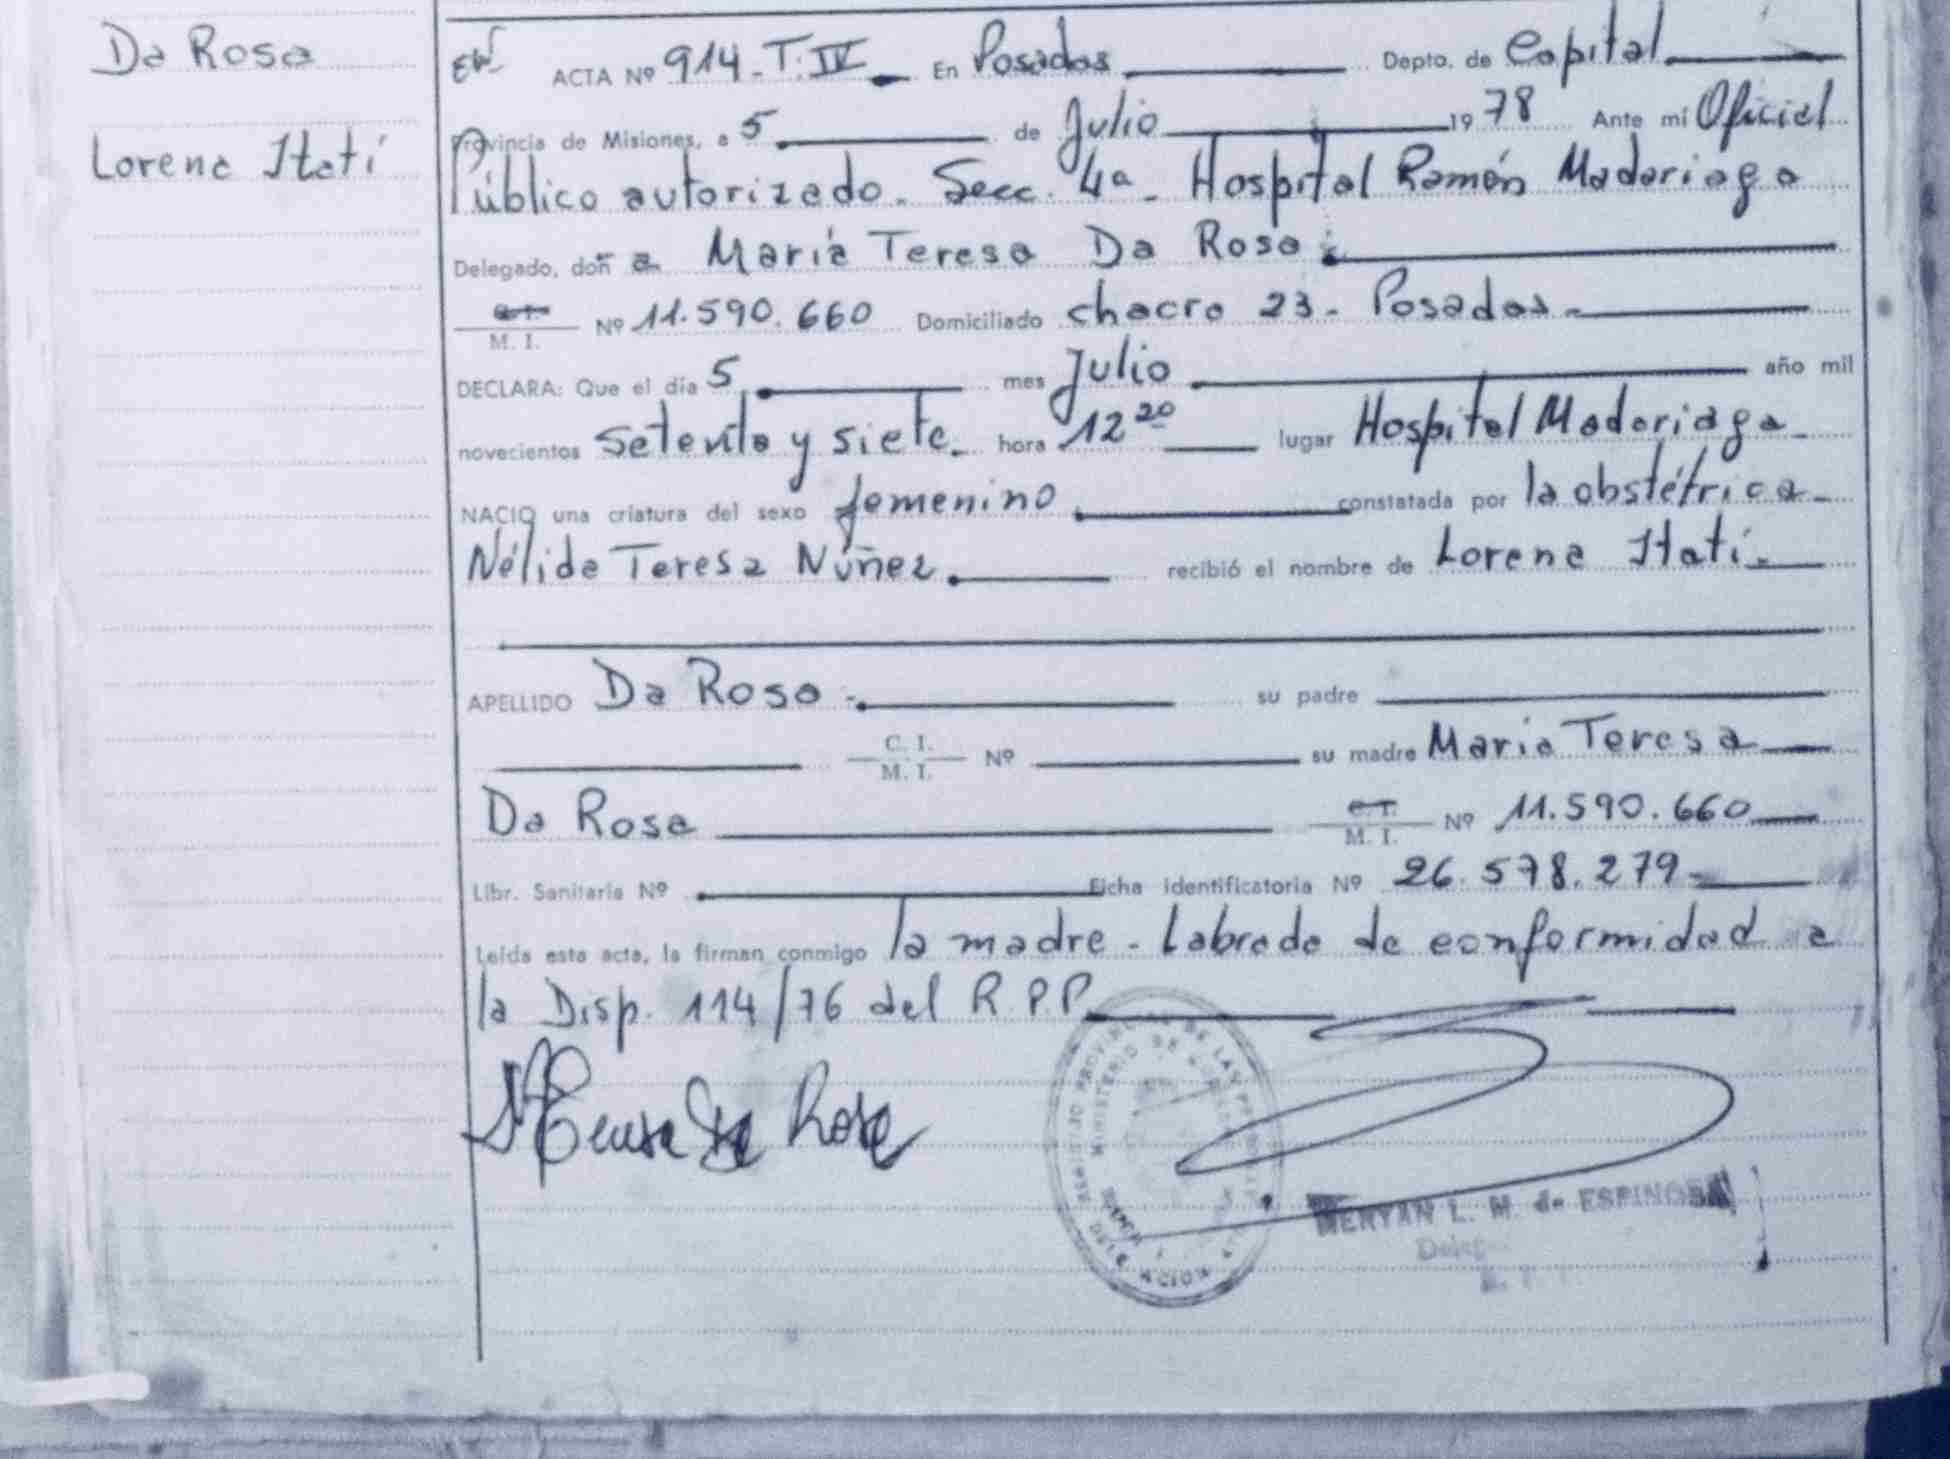 Da Rosa
Lorena Itatí
ACTA Nº 914-T.IV En Posadas Depto. de Capital
Provincia de Misiones, a 5 de Julio 1978 Ante mí Oficial
Público autorizado. Secc. 4ª - Hospital Ramón Madariaga
Delegado, doña María Teresa Da Rosa.
C.I.
M. I. Nº 11.590.660 Domiciliado chacra 23 - Posadas -
DECLARA: Que el día 5 mes Julio año mil
novecientos setenta y siete. hora 12 20 lugar Hospital Madariaga -
NACIO una criatura del sexo femenino constatada por la obstétrica -
Nélida Teresa Núñez. recibió el nombre de Lorena Itatí -
APELLIDO Da Rosa - su padre
C. I.
M. I. Nº su madre María Teresa
Da Rosa C.I.
M. I. Nº 11.590.660
Libr. Sanitaria Nº Ficha identificatoria Nº 26.578.279 -
Leída esta acta, la firman conmigo la madre - Labrada de conformidad a
la Disp. 114/76 del R.P.P.
Teresa da Rosa
L. M. de ESPINOSA